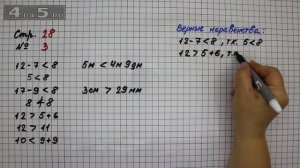 4 из 5
Стр. 28
№ 3
12-7<8
5<8
17-9<8
8≮8
12>5+6
12>11
10<9+9
5м<4м 9дм
3см>29мм
Верные неравенства:
12-7<8, т.к. 5<8
12>5+6, т.к